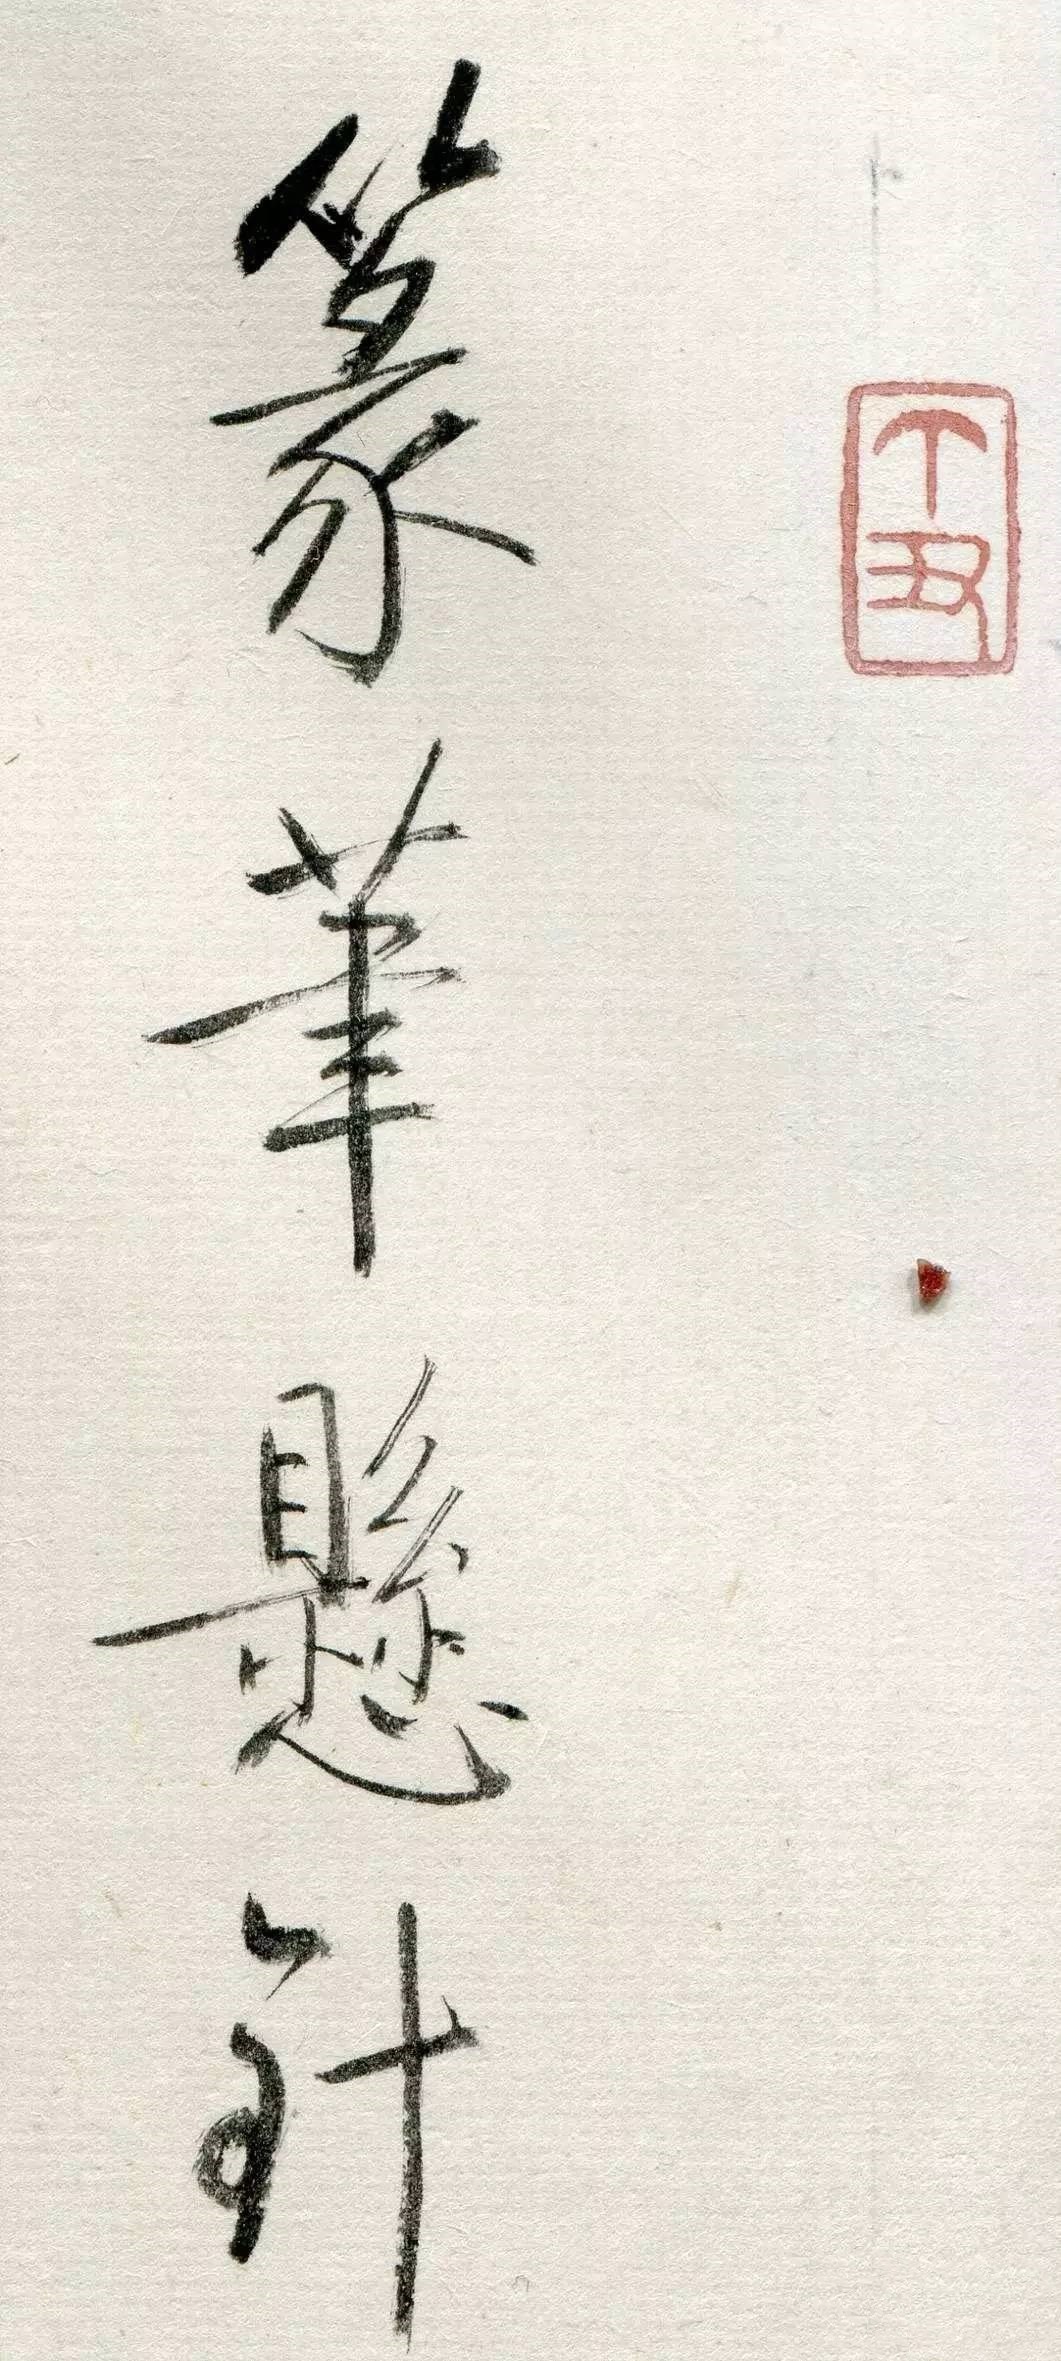 丁丑
篆筆懸針